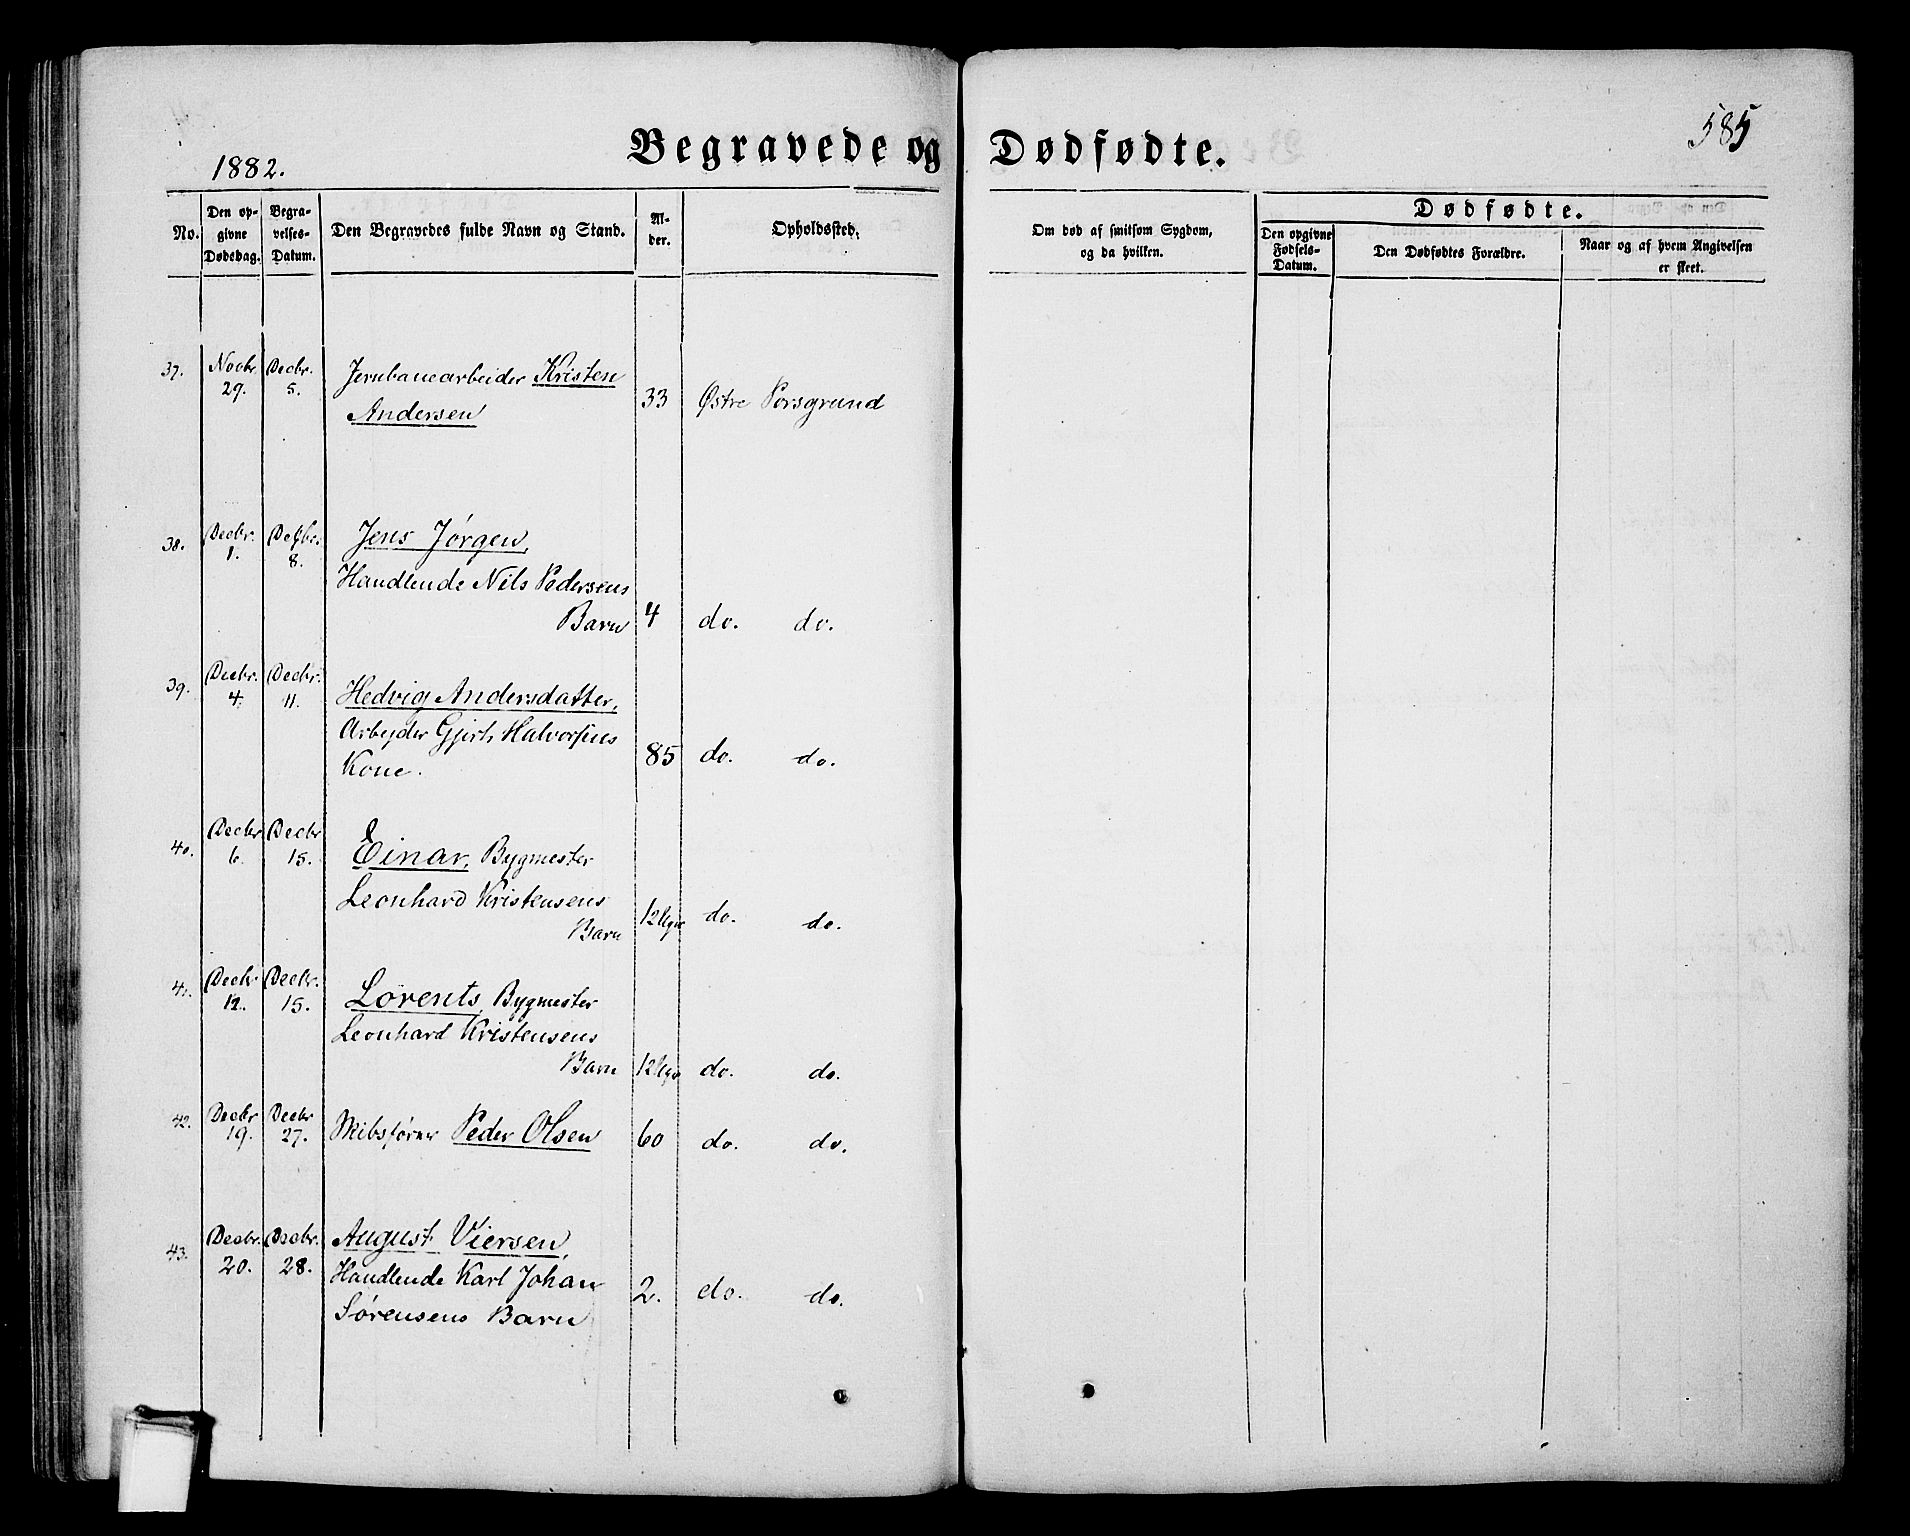 585
1882.
Begravede og Dødfødte.
No.
Den op-
givne
Dødsdag.
Begra-
velses-
Datum.
Den Begravedes fulde Navn og Stand.
Al-
der.
Opholdssted.
Om død af smitsom Sygdom,
og da hvilken.
Dødfødte.
Den opgivne
Fødsels-
Datum.
Den Dødfødtes Forældre.
Naar og af hvem Angivelsen
er skeet.
37. Novbr. 29. Decbr. 5. Jernbanearbeider Kristen
Andersen 33 Østre Porsgrund
38. Decbr. 1. 8. Jens Jørgen,
Handlende Nils Pedersens
Barn 4 do. do.
39. Decbr. 4. Decbr. 11. Hedvig Andersdatter,
Arbejder Halvorsens
Kone. 85 do. do.
40. Decbr 6. Decbr 15. Einar, Bygmester
Leonhard Kristensens
Barn 12 Uger do. do.
41. Decbr 12. Decbr. 15. Lorents, Bygmester
Leonhard Kristensens
Barn 12 Uger do. do.
42. Decbr 19. Decbr 27. Skibsfører Peder Olsen 60 do. do.
43. Decbr. 20. Decbr. 28. August Viersen,
Handlende Karl Johan
Sørensens Barn 2. do. do.